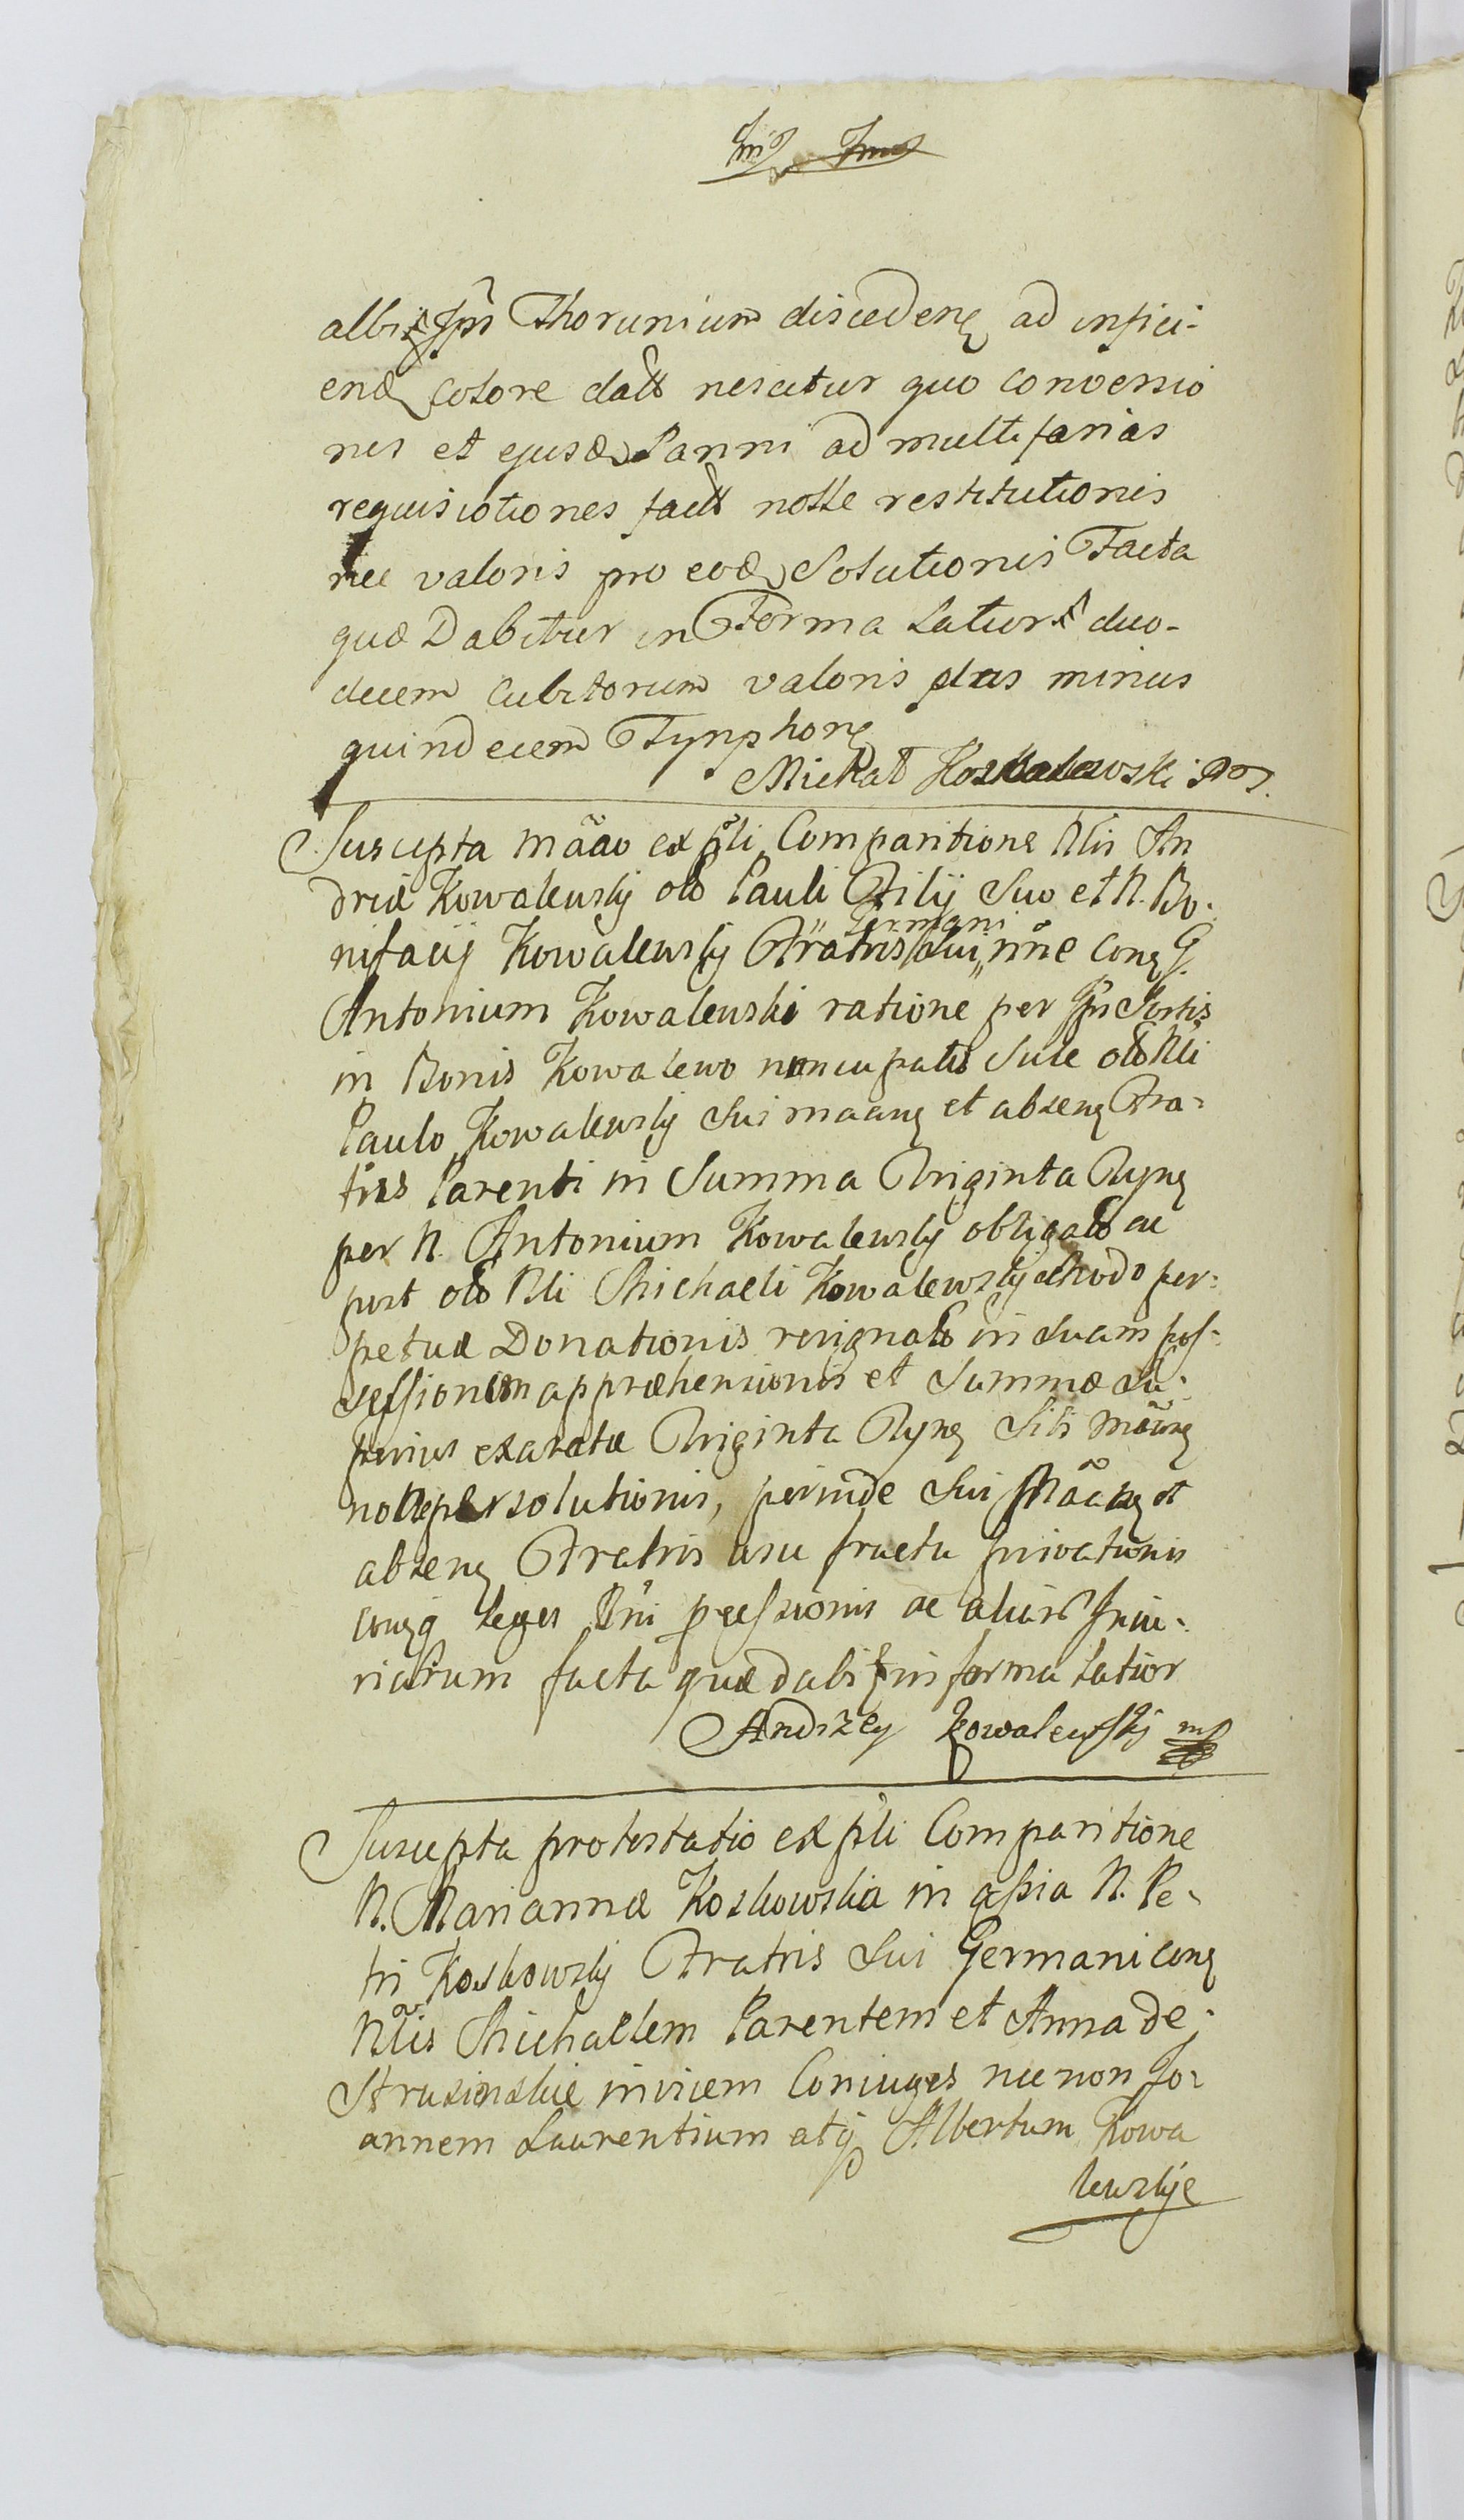 albi Thorunium discedens ad infici-
end colore datt nescitur quo conversio
nis et ejusd Panni ad multifarias
requisitiones fact nolle restitutionis
nec valoris pro eod Solutionis Facta
quæ Dabitur in Forma Latiori duo-
decem Cubitorum valoris plus minus
quindecem Tynphon
Michał
Suscepta mãao ex pli Comparitione Nlis An
dreæ Kowalewskj olo Pauli Filij Suo et N. Bo-
nifacij Kowalewskj Fratris Sui Germani nne Cong G.
Antonium Kowalewski ratione per Ipm Sortis
in Bonis Kowalewo nuncupatis Suæ olo Nli
Paulo Kowalewskj Sui maang et abseng Fra-
tris Parenti in Summa Triginta Tynq
per N. Antonium Kowalewskj obligato ac
post olo Nli Michaeli Kowalewskj Modo per-
petuæ Donationis resignato in Suam pos-
sessionem appræhensionis et Summæ Su-
perius exaratæ Triginta Tynq Sibi mãang
nolle persolutionis, perinde Sui Mãang et
abseng Fratris usu fructu privationis
cong Leges Rni pcessionis ac aliar Iniu-
riarum facta quæ dabit in forma Latior
Andrzey Kowalewskj mp
Suscepta protestatio ex pli Comparitione
N. Mariannæ Koskowska in assia N. Pe-
tri Koskowskj Fratris Sui Germani cong
Nlis Michaelem Parentem et Anna de
Strusinskie invicem Coniuges nec non Jo-
annem Laurentium atq Albertum Kowa
lewskje